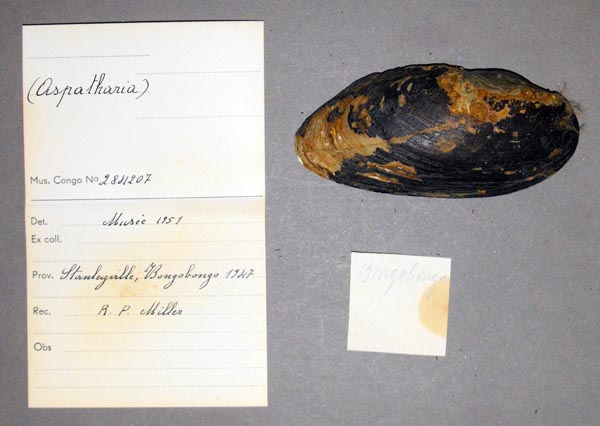 (Aspatharia)
Mus. Congo No 284207
Det. Musée 1951
Ex coll.
Prov. Stanleyville, Bongobongo 1947
Rec. R. P. Miller
Obs
Bongobongo